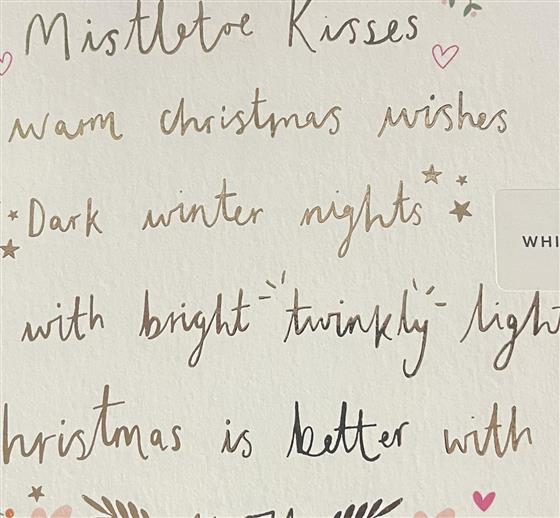 Mistletoe Kisses
warm christmas wishes
Dark winter nights
WHI
with bright twinkly light
hristmas is better with